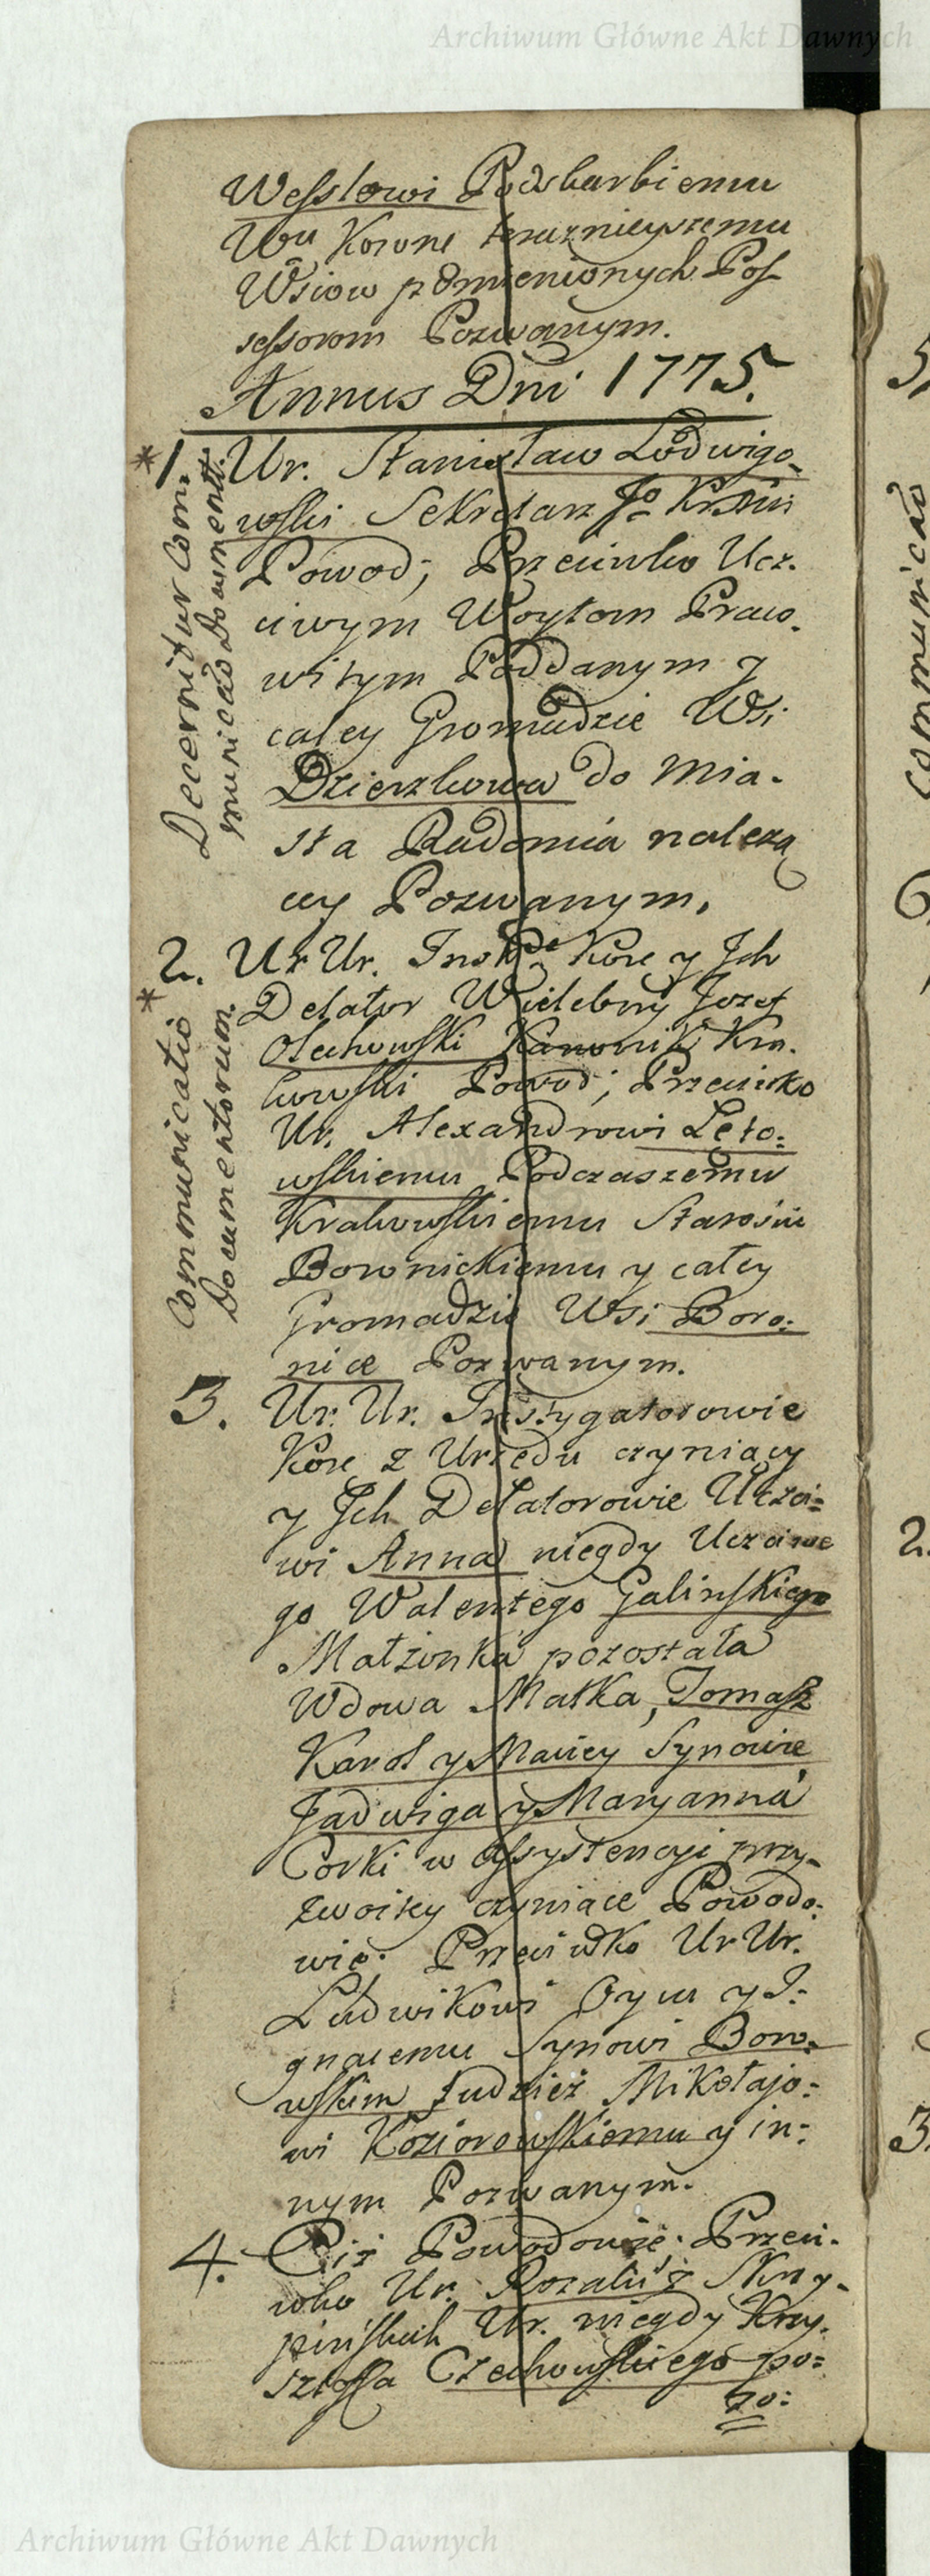 Archiwum Główne Akt Dawnych
Wesslowi Podskarbiemu
Wu Korone teraznieyszemu
Wsiow pomienionych Pos
sessorom Pozwanym.
Annus Dni 1775.
* 1. Ur. Stanisław Lodwigo-
wski Sekretarz Jo Krmci
Powod; Przeciwko Ucz.
ciwym Woytom Praco.
witym Poddanym y
całey Gromadzie Wsi
Dzierzkowa do Mia-
sta Radomia nalezą
cey Pozwanym.
Decernitur Com:
municao Documentt:
2. Ur Ur. Kore y Jch
* Delator Wielebny Jozef
Olechowski Kanonik Kra.
kowski Powod; Przeciwko
Ur. Alexandrowi Leto:
wskiemu Podczaszemu
Krakowskiemu Starości
Bownickiemu y całey
Gromadzie Wsi Boro:
nice Pozwanym.
Communicatio
Documentorum.
3. Ur. Ur. Instygatorowie
Kore z Urzedu czyniący
y Jch Delatorowie Uczci=
wi Anna niegdy Uczciwe
go Walentego Galinskiego
Małzonka pozostała
Wdowa Matka, Tomasz
Karol y Maciey Synowie
Jadwiga y Maryanna
Corki w Assystencyi przy-
zwoitey czyniące Powodo:
wie. Przeciwko Ur Ur.
Ludwikowi Oycu y I:
gnacemu Synowi Bow:
wskim tudziez Mikołajo:
wi Koziorowskiemu y in:
nym Pozwanym.
4. Ciż Powodowie. Przeci.
wko Ur. Rozalii z Skrzy-
pinskich Ur. niegdy Krzy.
sztoffa Czechowskiego po=
zo:
Communicao
5.
2.
3.
Archiwum Główne Akt Dawnych